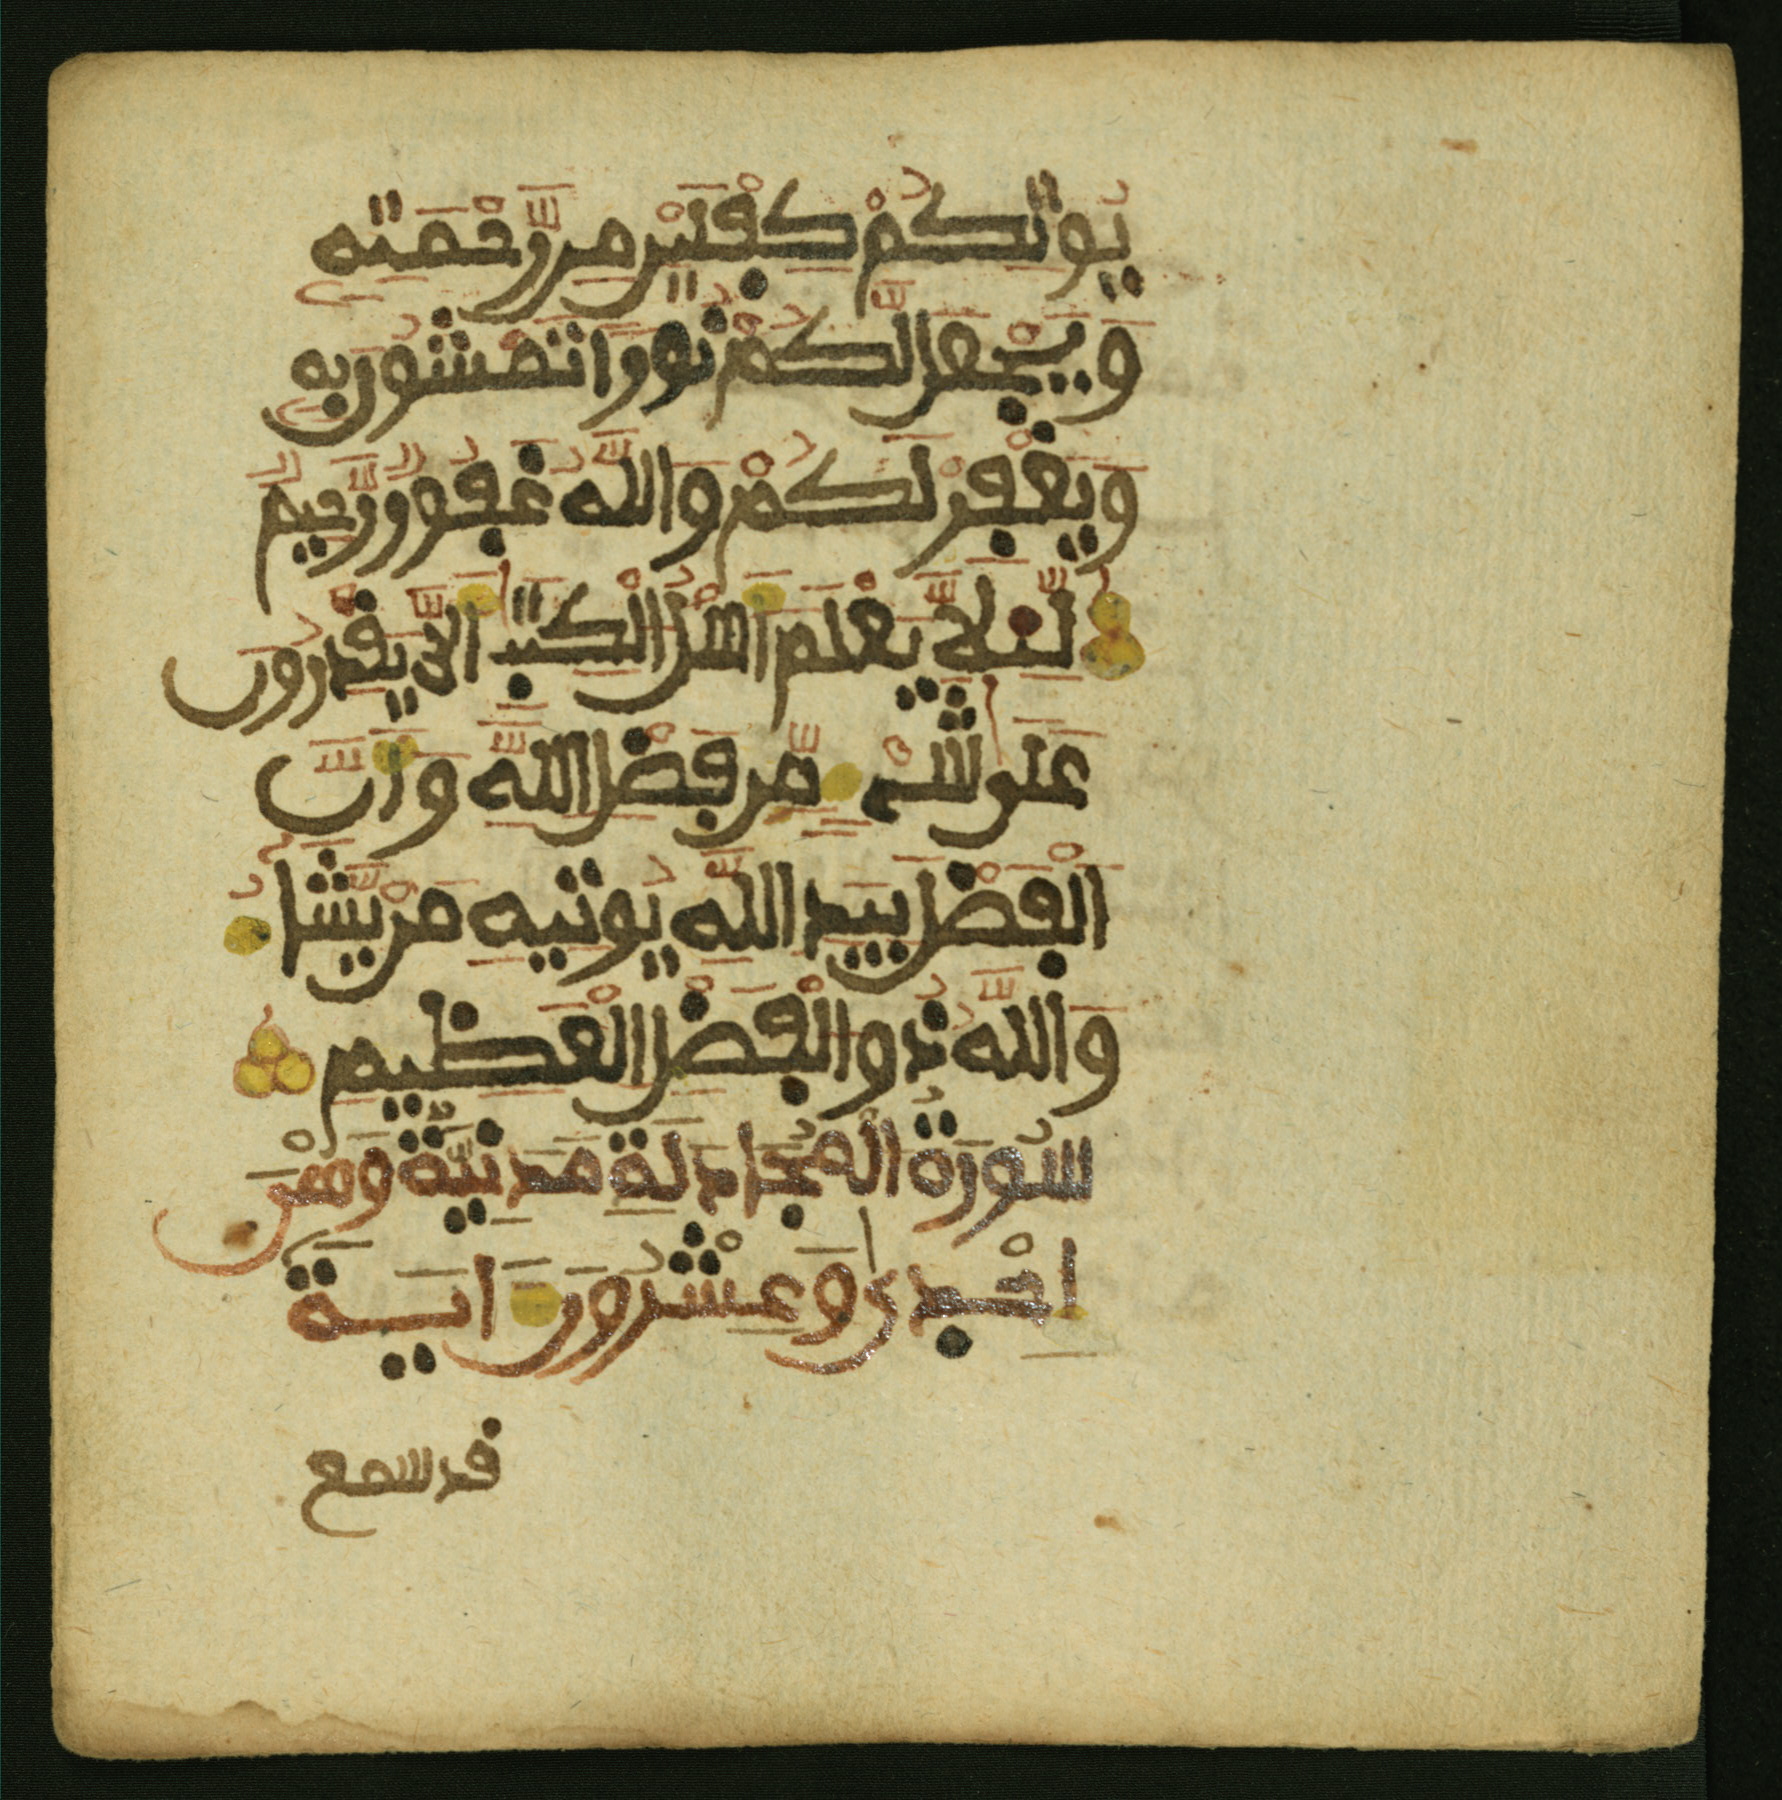 يُوتِكُمْ كِفْلَيْنِ مِن رَّحْمَتِهِ
وَيَجْعَل لَّكُمْ نُورًا تَمْشُونَ بِهِ
وَيَغْفِرْ لَكُمْ وَاللَّهُ غَفُورٌ رَّحِيمٌ
لِّئَلَّا يَعْلَمَ أَهْلُ الْكِتَٰبِ أَلَّا يَقْدِرُونَ
عَلَىٰ شَيْءٍ مِّن فَضْلِ اللَّهِ وَأَنَّ
الْفَضْلَ بِيَدِ اللَّهِ يُوتِيهِ مَنْ يَّشَآءُ
وَاللَّهُ ذُو الْفَضْلِ الْعَظِيمِ
سُورَةُ الْمُجَادَلَةِ مَدَنِيَّةٌ وَهْىَ
إِحْدَىٰ وَعِشْرُونَ ءَايَةً
قد سمع